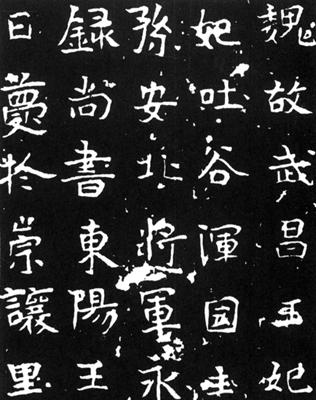 魏故武昌王妃
妃吐谷渾国主
孫安北將軍永
録尚書東陽王
日薨於崇讓里